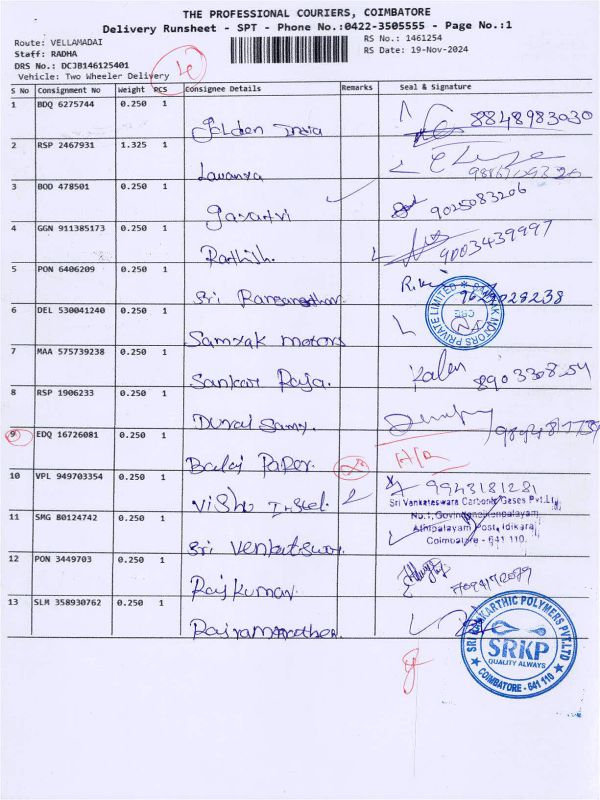 THE PROFESSIONAL COURIERS, COIMBATORE
Delivery Runsheet - SPT - Phone No.:0422-3505555 - Page No.:1
Route: VELLAMADAI
RS No.: 1461254
Staff: RADHA
RS Date: 19-Nov-2024
DRS No.: DCJB146125401
Vehicle: Two Wheeler Delivery
S No Consignment No Weight PCS Consignee Details Remarks Seal & Signature
1 BDQ 6275744 0.250 1
Golden India 8848983030
2 RSP 2467931 1.325 1
Lavanya
3 BOD 478501 0.250 1
gayatri 9025083206
4 GGN 911385173 0.250 1
Rathish. 9003439997
5 PON 6406209 0.250 1
Sri
6 DEL 530041240 0.250 1
Samyak motors
SAMYAK MOTORS PRIVATE LIMITED
CBE
7 MAA 575739238 0.250 1
Sankar Raja.
8 RSP 1906233 0.250 1
Durai Samy.
9 EDQ 16726081 0.250 1
Balaj Paper.
10 VPL 949703354 0.250 1 9943181281
Vishu
Sri Venkateswara Carbonic Gases Pvt.Ltd
No.1, Govindanaickenpalayam
Athipalayam Post, Idikarai
Coimbatore - 641 110.
11 SMG 80124742 0.250 1
Sri
12 PON 3449703 0.250 1
Rajkumar
13 SLM 358930762 0.250 1
SRI RANGAKARTHIC POLYMERS PVT.LTD
SRKP
QUALITY ALWAYS
COIMBATORE - 641 110